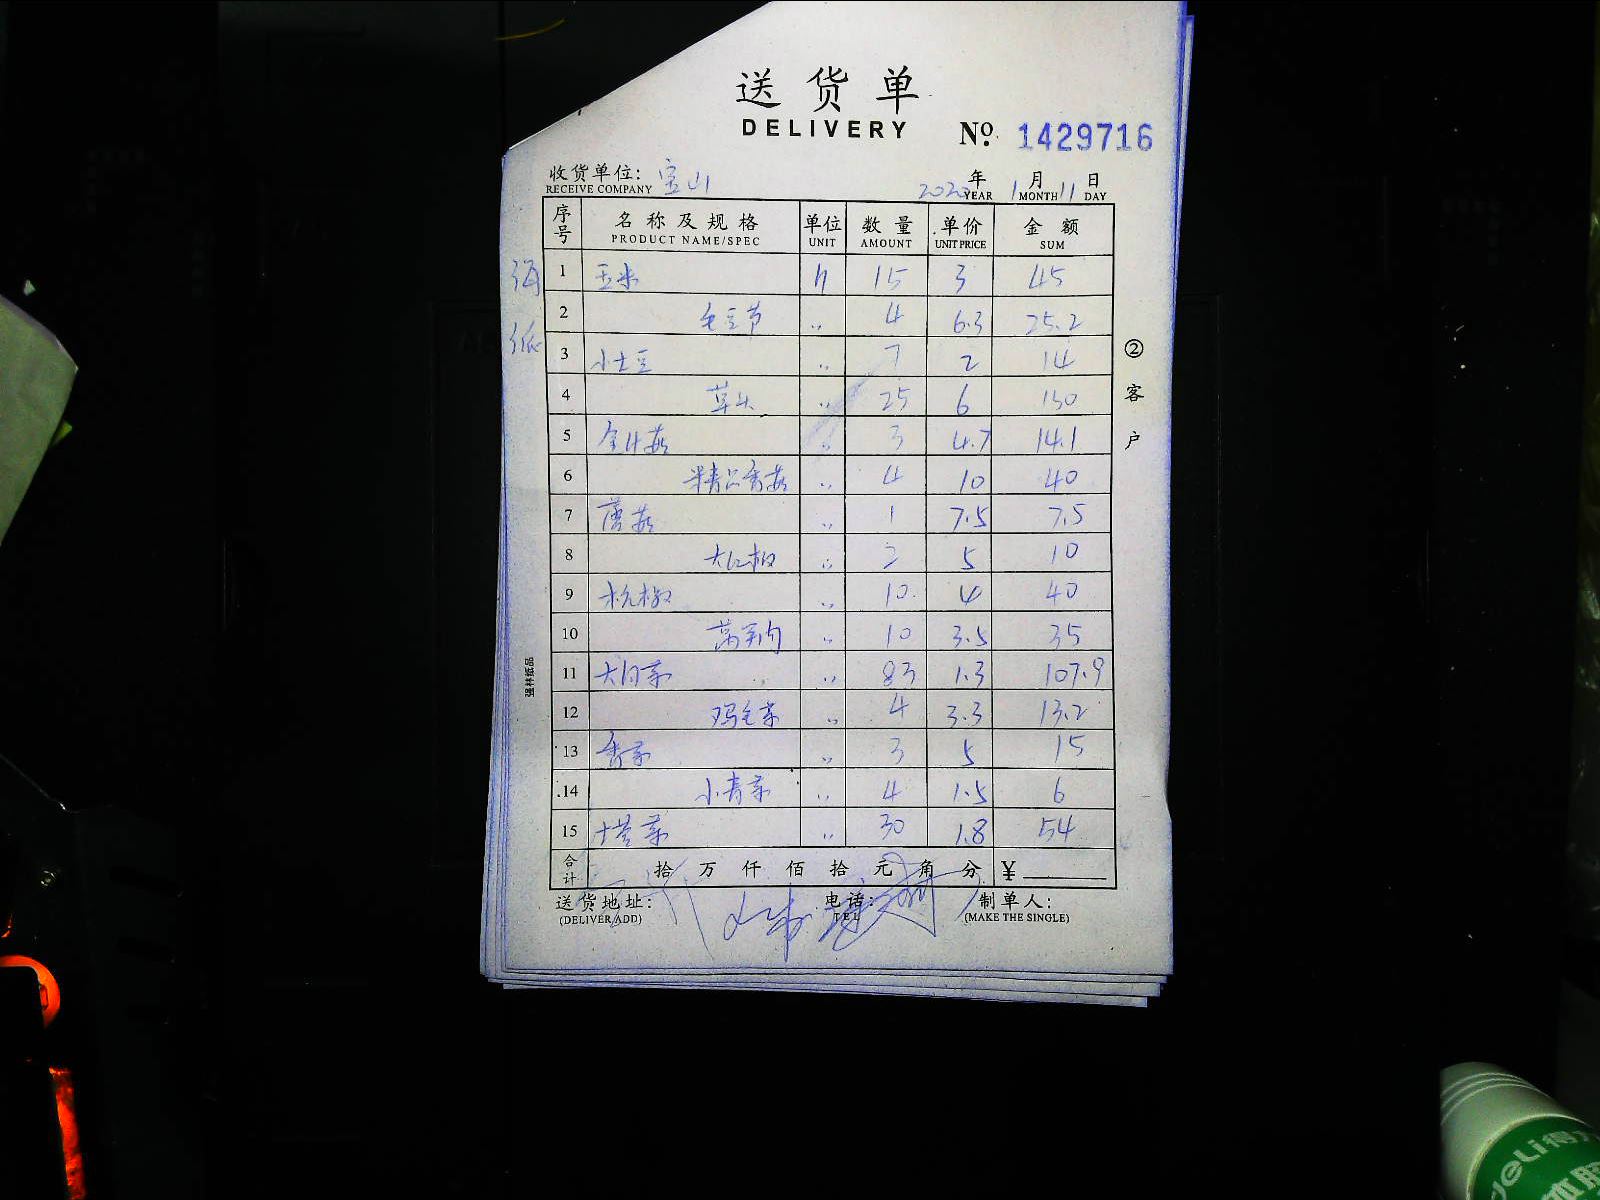 送货单
DELIVERY
№: 1429716
收货单位: 宝山
RECEIVE COMPANY
2020年 1月 11日
YEAR MONTH DAY
序号 名称及规格 单位 数量 单价 金额
PRODUCT NAME/SPEC UNIT AMOUNT UNIT PRICE SUM
1 玉米 斤 15 3 45
2 毛豆节 〃 4 6.3 25.2
3 小土豆 〃 7 2 14
4 草头 〃 25 6 150
5 金针菇 〃 3 4.7 14.1
6 精品香菇 〃 4 10 40
7 蘑菇 〃 1 7.5 7.5
8 大红椒 〃 2 5 10
9 杭椒 〃 10 4 40
10 莴笋 〃 10 3.5 35
11 大白菜 〃 83 1.3 107.9
12 鸡毛菜 〃 4 3.3 13.2
13 香菜 〃 3 5 15
14 小青菜 〃 4 1.5 6
15 塔菜 〃 30 1.8 54
合计 拾 万 仟 佰 拾 元 角 分 ¥
送货地址: 电话: 制单人:
(DELIVER ADD) TEL (MAKE THE SINGLE)
②客户
强林纸品
deli得力